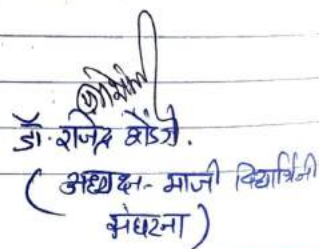 डॉ. राजेंद्र
(अध्यक्ष - माजी विद्यार्थिनी
संघटना)